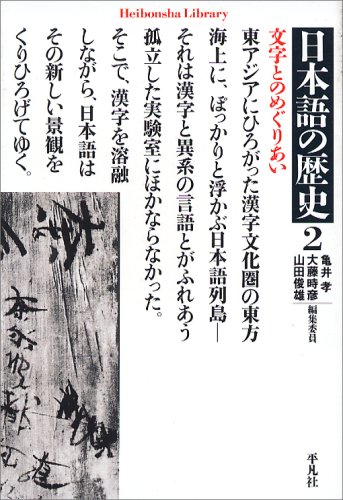 Heibonsha Library
日本語の歴史2
亀井 孝
大藤時彦
山田俊雄
編集委員
文字とのめぐりあい
東アジアにひろがった漢字文化圏の東方
海上に、ぽっかりと浮かぶ日本語列島―
それは漢字と異系の言語とがふれあう
孤立した実験室にほかならなかった。
そこで、漢字を溶融
しながら、日本語は
その新しい景観を
くりひろげてゆく。
平凡社